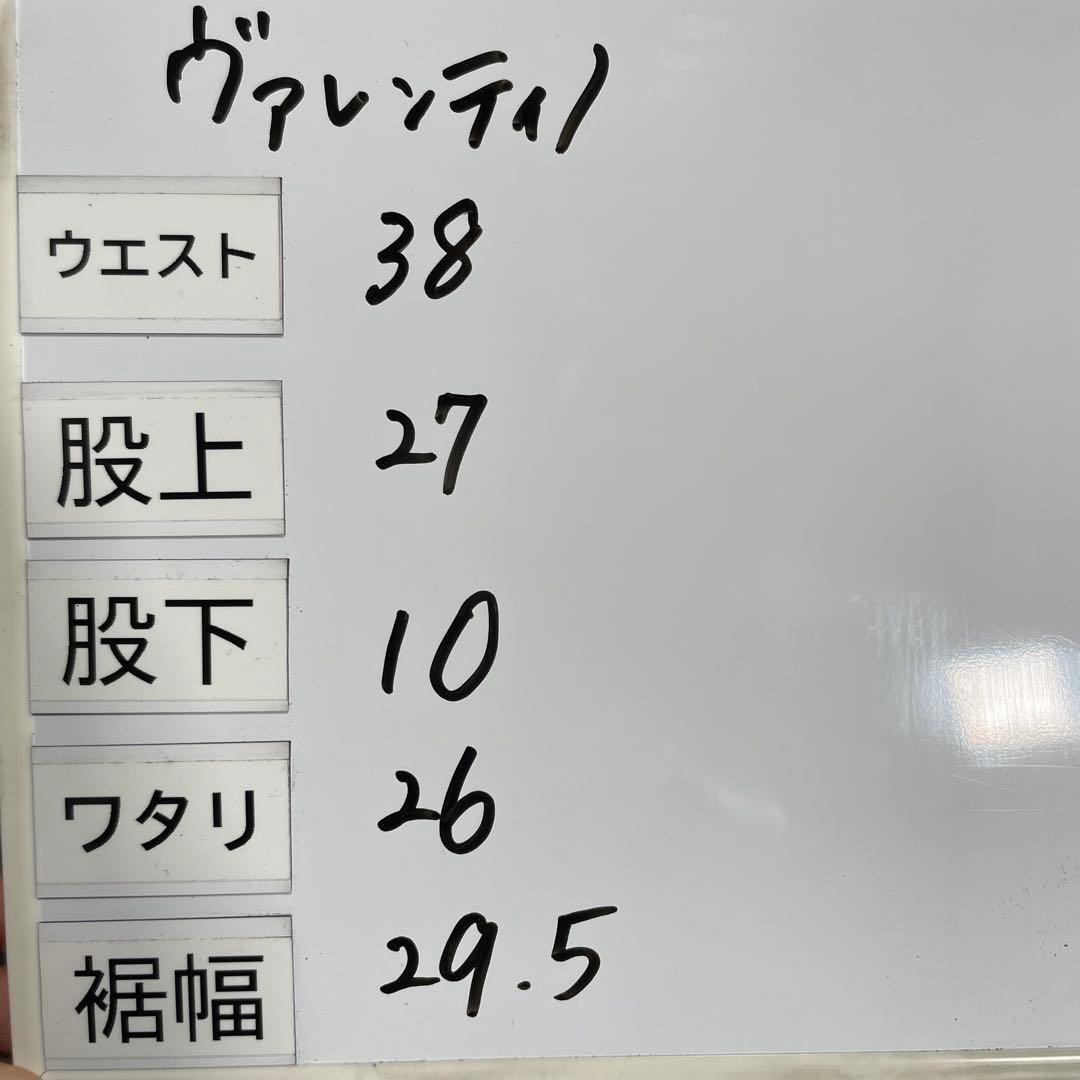 ヴァレンティノ
ウエスト 38
股上 27
股下 10
ワタリ 26
裾幅 29.5